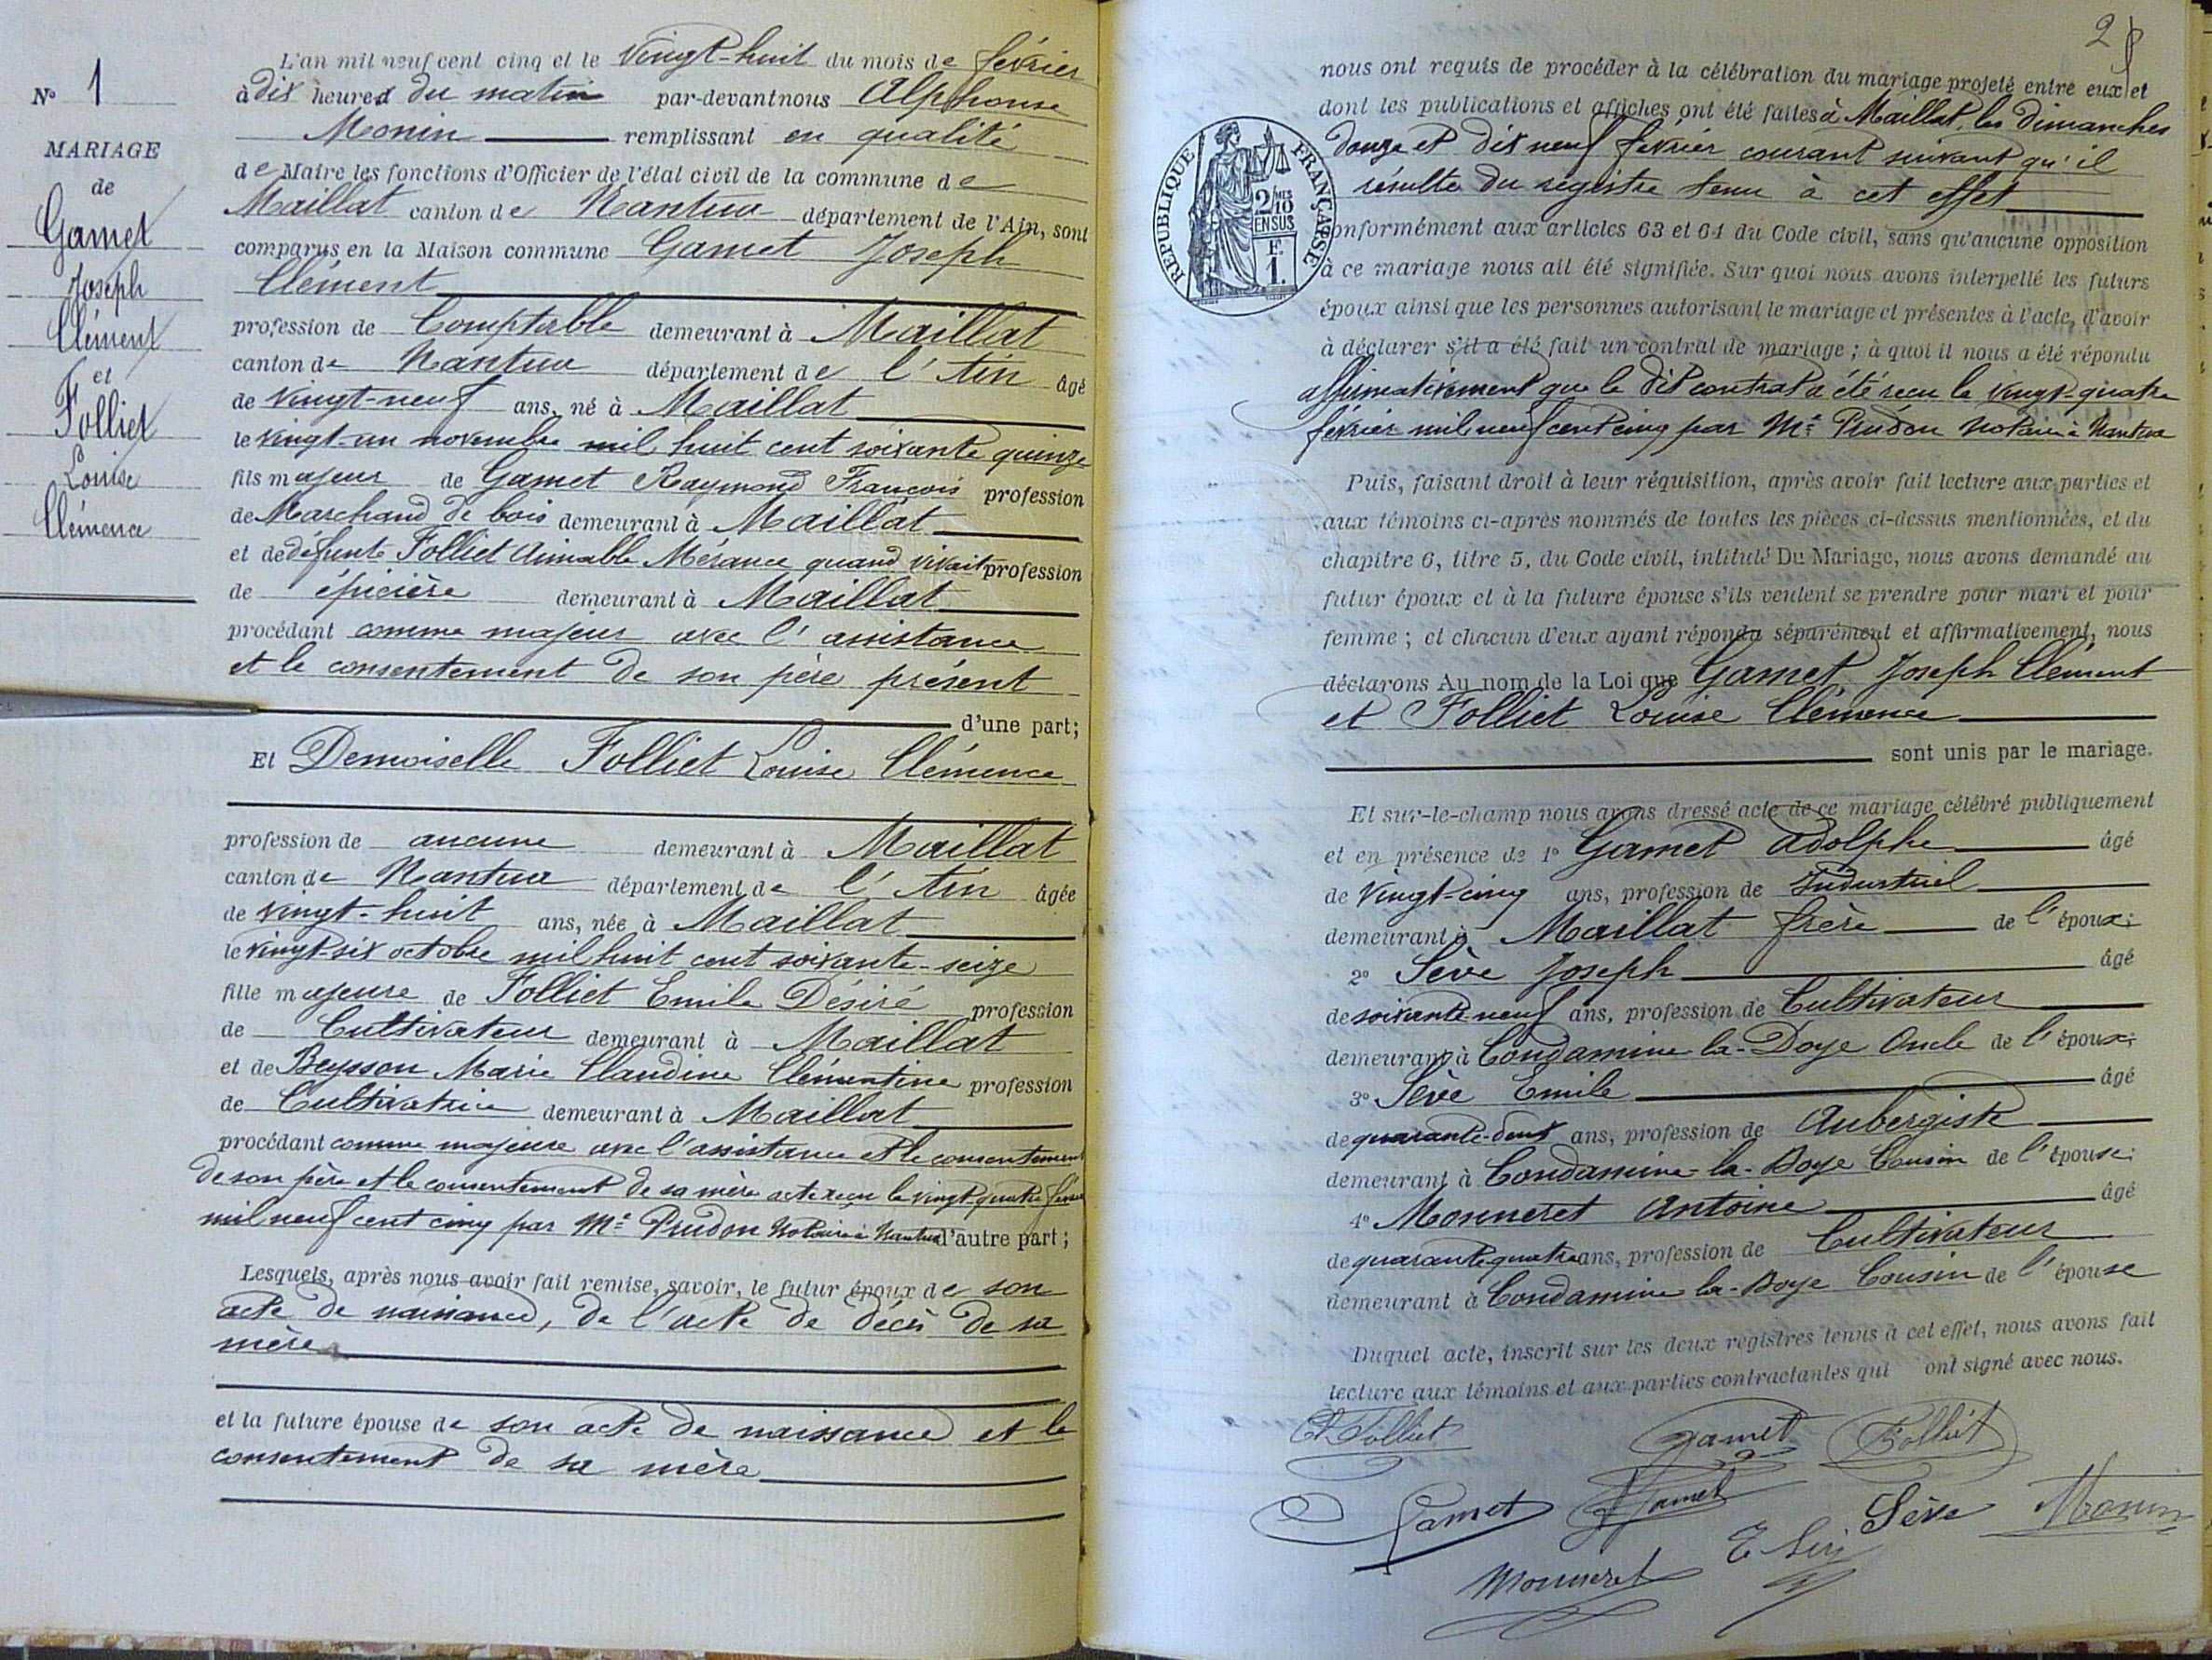 N° 1
MARIAGE
de
Gamet
Joseph
Clément
et
Folliet
Louise
Clémence
L'an mil neuf cent cinq et le vingt-huit du mois de février
à dix heures du matin par-devant nous Alphonse
Monin remplissant en qualité
de Maire les fonctions d'Officier de l'état civil de la commune de
Maillat canton de Nantua département de l'Ain, sont
comparus en la Maison commune Gamet Joseph
Clément
profession de Comptable demeurant à Maillat
canton de Nantua département de l'Ain âgé
de vingt-neuf ans, né à Maillat
le vingt-un novembre mil huit cent soixante quinze
fils majeur de Gamet Raymond François profession
de Marchand de bois demeurant à Maillat
et de défunte Folliet Aimable Mérance quand vivait profession
de épicière demeurant à Maillat
procédant comme majeur avec l'assistance
et le consentement de son père présent
d'une part;
Et Demoiselle Folliet Louise Clémence
profession de aucune demeurant à Maillat
canton de Nantua département de l'Ain âgée
de vingt-huit ans, née à Maillat
le vingt-six octobre mil huit cent soixante-seize
fille majeure de Folliet Emile Désiré profession
de Cultivateur demeurant à Maillat
et de Beysson Marie Claudine Clémentine profession
de Cultivatrice demeurant à Maillat
procédant comme majeure avec l'assistance et le consentement
de son père et le consentement de sa mère acte reçu le vingt-quatre février
mil neuf cent cinq par Me Prudon Notaire à Nantua d'autre part;
Lesquels, après nous avoir fait remise, savoir, le futur époux de son
acte de naissance, de l'acte de décès de sa
mère
et la future épouse de son acte de naissance et le
consentement de sa mère
2
RÉPUBLIQUE FRANÇAISE
2/10 EN SUS
F.
1.
nous ont requis de procéder à la célébration du mariage projeté entre eux et
dont les publications et affiches ont été faites à Maillat, les dimanches
douze et dix neuf février courant suivant qu'il
résulte du registre tenu à cet effet
conformément aux articles 63 et 64 du Code civil, sans qu'aucune opposition
à ce mariage nous ait été signifiée. Sur quoi nous avons interpellé les futurs
époux ainsi que les personnes autorisant le mariage et présentes à l'acte, d'avoir
à déclarer s'il a été fait un contrat de mariage ; à quoi il nous a été répondu
affirmativement que le dit contrat a été reçu le vingt-quatre
février mil neuf cent cinq par Me Prudon Notaire à Nantua
Puis, faisant droit à leur réquisition, après avoir fait lecture aux parties et
aux témoins ci-après nommés de toutes les pièces ci-dessus mentionnées, et du
chapitre 6, titre 5, du Code civil, intitulé Du Mariage, nous avons demandé au
futur époux et à la future épouse s'ils veulent se prendre pour mari et pour
femme ; et chacun d'eux ayant répondu séparément et affirmativement, nous
déclarons Au nom de la Loi que Gamet Joseph Clément
et Folliet Louise Clémence
sont unis par le mariage.
Et sur-le-champ nous avons dressé acte de ce mariage célébré publiquement
et en présence de 1° Gamet Adolphe âgé
de vingt-cinq ans, profession de Industriel
demeurant à Maillat frère de l'époux;
2° Sève Joseph âgé
de soixante-neuf ans, profession de Cultivateur
demeurant à Condamine-la-Doye Oncle de l'époux;
3° Sève Emile âgé
de quarante-deux ans, profession de Aubergiste
demeurant à Condamine-la-Doye Cousin de l'épouse;
4° Monneret Antoine âgé
de quarante-quatre ans, profession de Cultivateur
demeurant à Condamine la-Doye Cousin de l'épouse
Duquel acte, inscrit sur les deux registres tenus à cet effet, nous avons fait
lecture aux témoins et aux parties contractantes qui ont signé avec nous.
Folliet Gamet Folliet
Gamet Gamet Sève Monin
Monneret E Sève